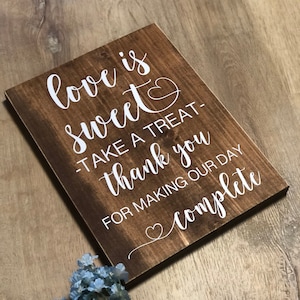 love is
sweet
-TAKE A TREAT-
thank you
FOR MAKING OUR DAY
complete